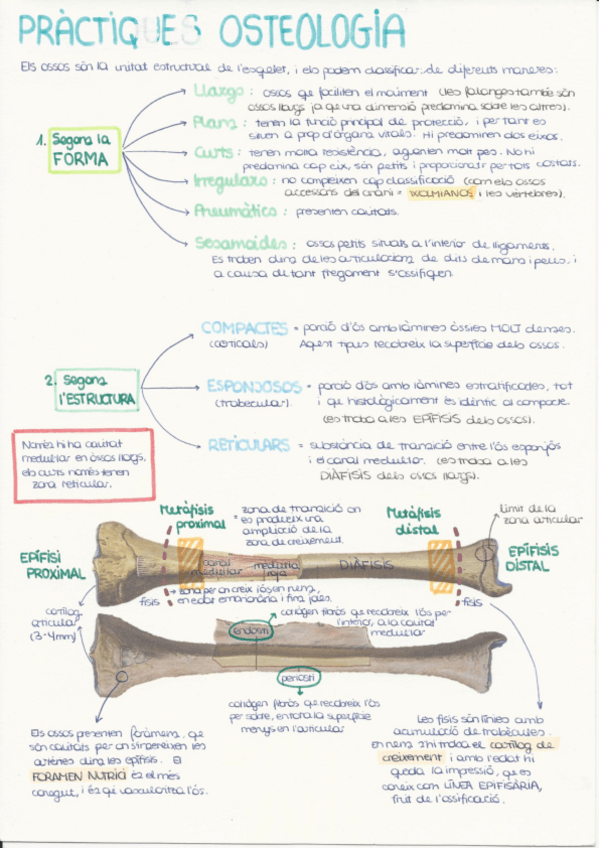 PRÀCTIQUES OSTEOLOGIA
Els ossos són la unitat estructural de l'esquelet, i els podem classificar de diferents maneres:
1. Segons la FORMA
Llargs: ossos que faciliten el moviment (les falanges també són
ossos llargs ja que una dimensió predomina sobre les altres).
Plans: tenen la funció principal de protecció, i per tant es
situen a prop d'òrgans vitals. Hi predominen dos eixos.
Curts: tenen molta resistència, aguanten molt pes. No hi
predomina cap eix, són petits i proporcionats per tots costats.
Irregulars: no compleixen cap classificació (com els ossos
accessoris del crani = WOLMIANOS i les vèrtebres).
Pneumàtics: presenten cavitats.
Sesamoides: ossos petits situats a l'interior de lligaments.
Es troben dins de les articulacions de dits de mans i peus, i
a causa de tant fregament s'ossifiquen.
2. Segons
l'ESTRUCTURA
COMPACTES = porció d'ós amb làmines òssies MOLT denses.
(corticals) Aquest tipus recobreix la superfície dels ossos.
ESPONJOSOS = porció d'ós amb làmines estratificades, tot
(trabecular) i que histològicament és idèntic al compacte.
(es troba a les EPÍFISIS dels ossos).
RETICULARS = substància de transició entre l'ós esponjós
i el canal medul·lar. (es troba a les
DIÀFISIS dels ossos llargs).
Només hi ha cavitat
medul·lar en ossos llargs,
els curts només tenen
zona reticular.
Metàfisis
proximal
zona de transició on
es produeix una
ampliació de la
zona de creixement.
Metàfisis
distal
Límit de la
zona articular
EPÍFISI
PROXIMAL
canal
medul·lar
medul·la
roja
DIÀFISIS
EPÍFISIS
DISTAL
fisis
zona per on creix l'ós en nens,
en edat embrionària i fins joves.
fisis
cartílag
articular
(3-4mm)
endosti
col·làgen fibrós que recobreix l'ós per
l'interior, a la cavitat
medul·lar
periosti
col·làgen fibrós que recobreix l'ós
per sobre, en tota la superfície
menys en l'articular
Els ossos presenten foràmens, que
són cavitats per on s'insereixen les
artèries dins les epífisis. El
FORAMEN NUTRICI és el més
conegut, i és qui vascularitza l'ós.
Les fisis són línies amb
acumulació de trabècules.
en nens s'hi troba el cartílag de
creixement i amb l'edat hi
queda la impressió, que es
coneix com LÍNEA EPIFISÀRIA,
fruit de l'ossificació.